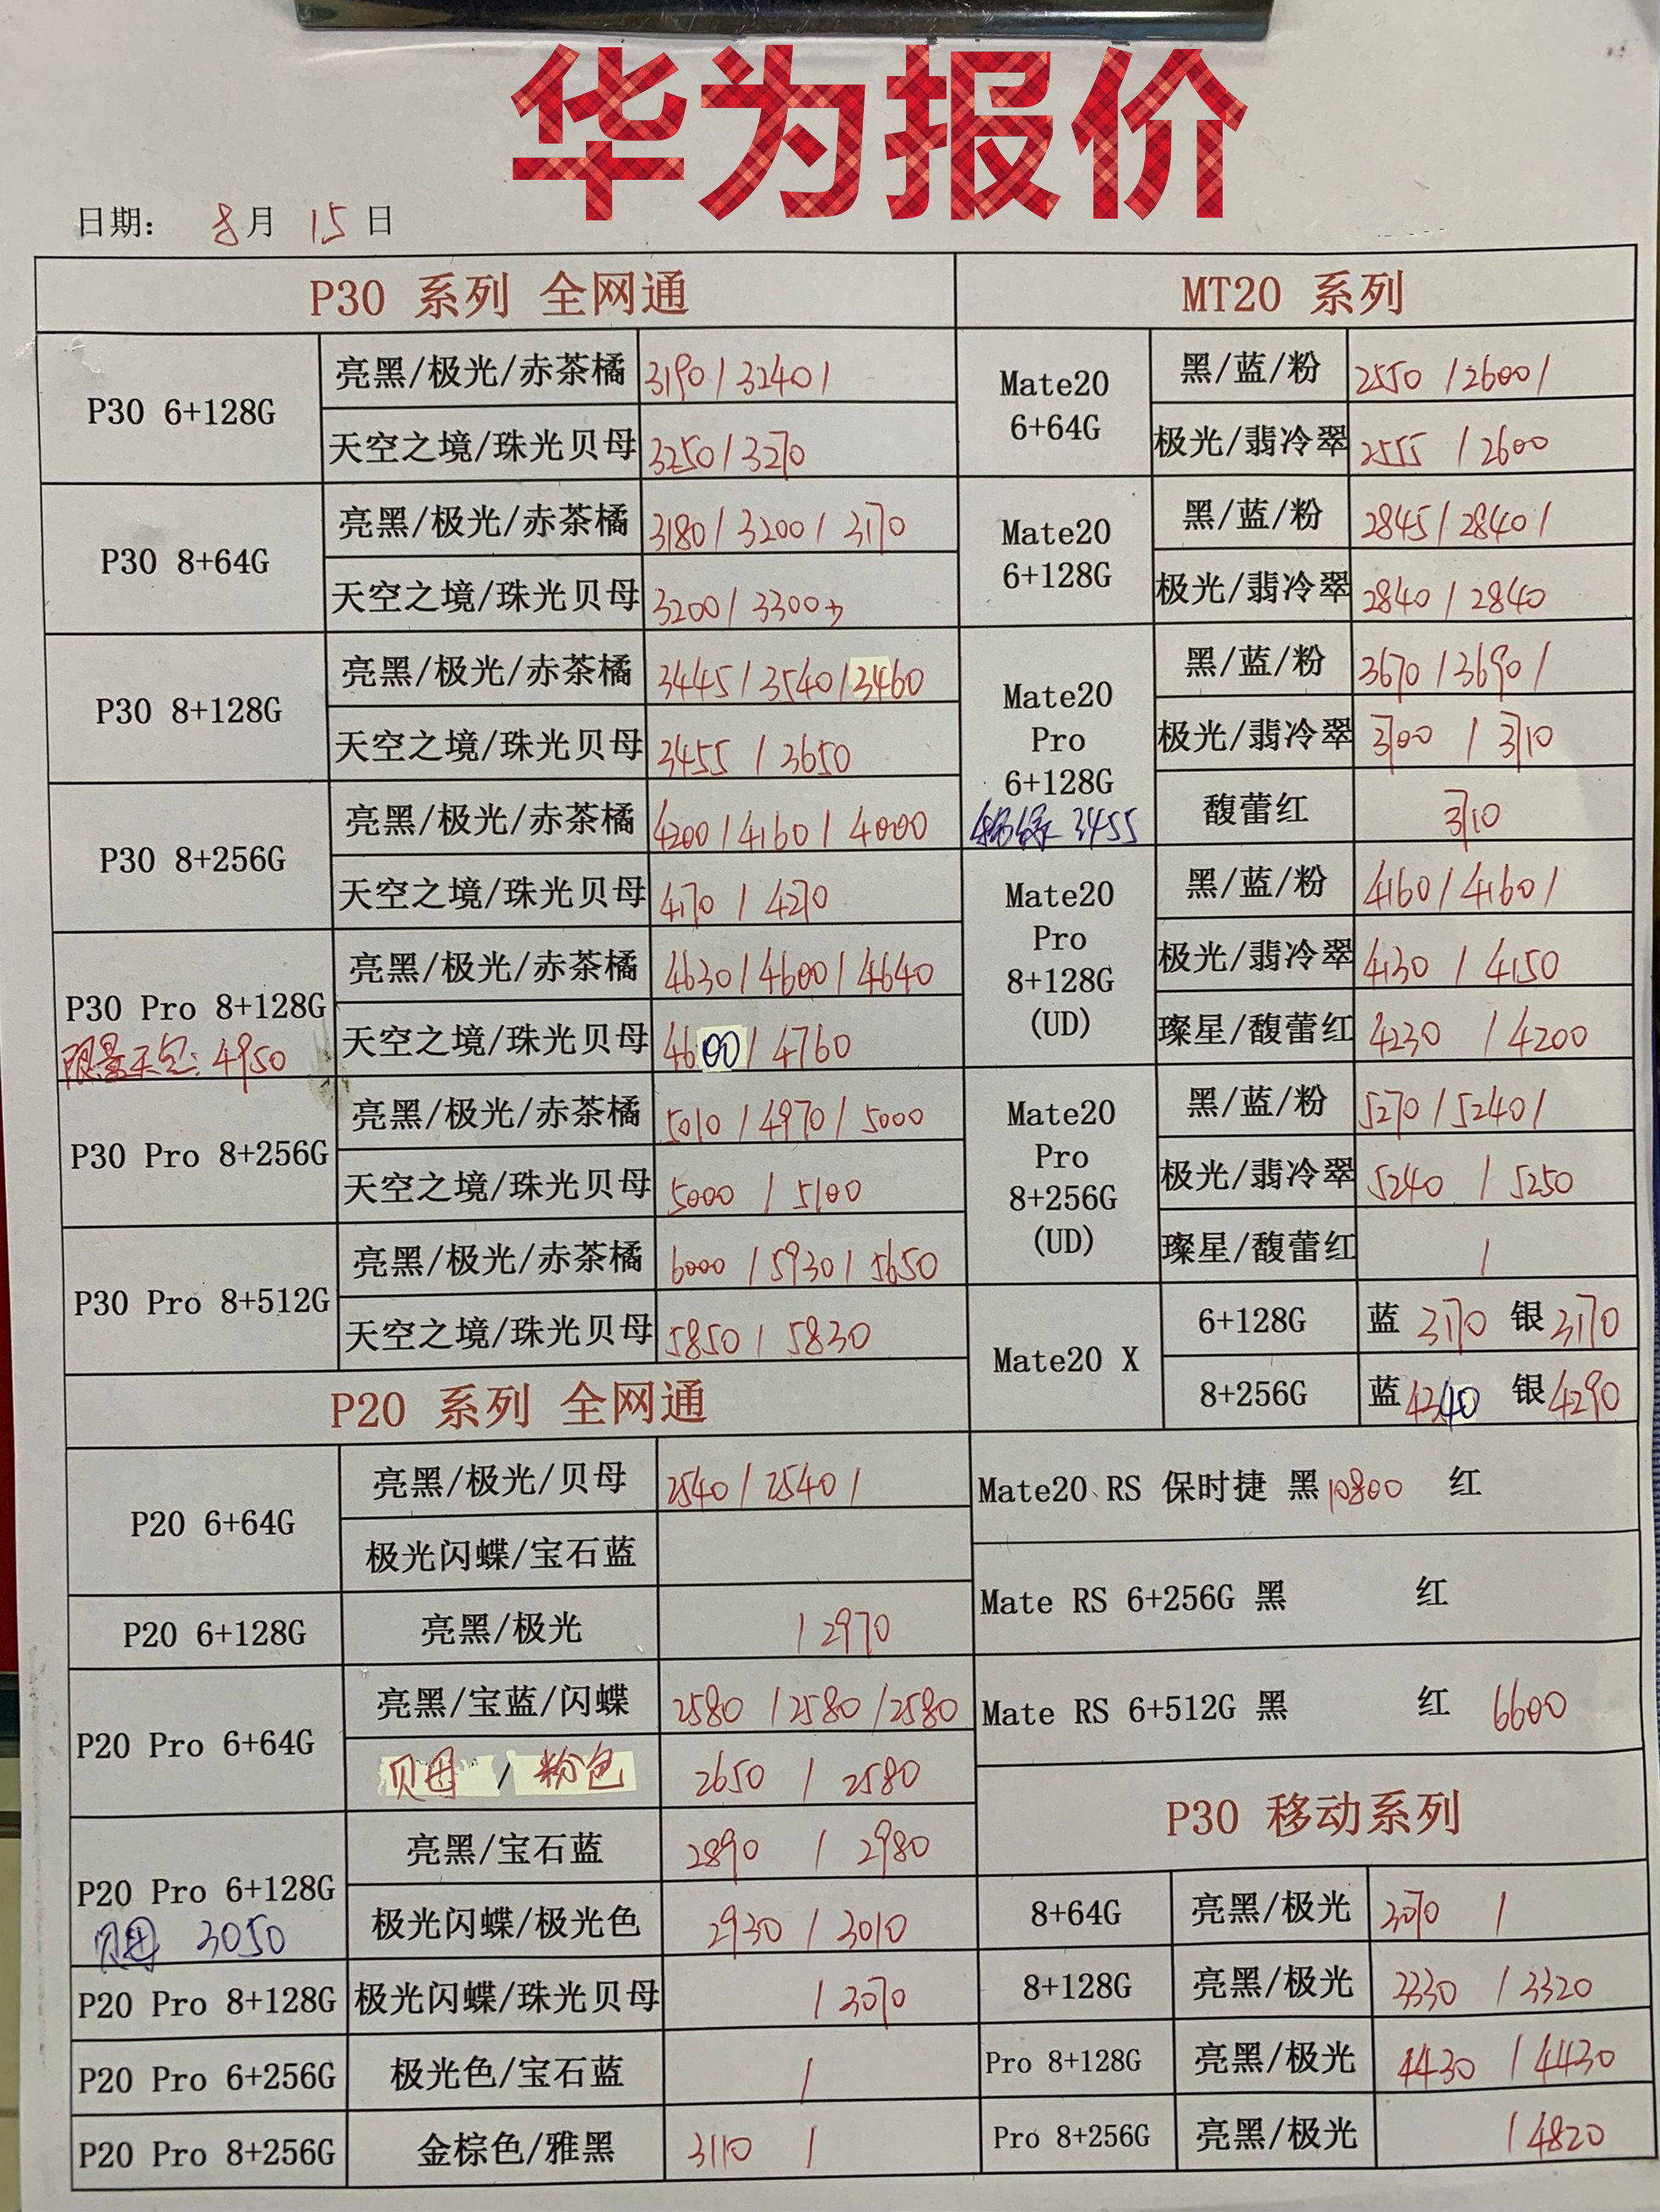 华为报价
日期： 8月 15日
P30 系列 全网通
P30 6+128G
亮黑/极光/赤茶橘 3190/3240/
天空之境/珠光贝母 3250/3270
P30 8+64G
亮黑/极光/赤茶橘 3180/3200/3170
天空之境/珠光贝母 3200/3300
P30 8+128G
亮黑/极光/赤茶橘 3445/3540/3460
天空之境/珠光贝母 3455/3650
P30 8+256G
亮黑/极光/赤茶橘 4200/4160/4000
天空之境/珠光贝母 4170/4270
P30 Pro 8+128G
天空:4950
亮黑/极光/赤茶橘 4630/4600/4640
天空之境/珠光贝母 4600/4760
P30 Pro 8+256G
亮黑/极光/赤茶橘 5010/4970/5000
天空之境/珠光贝母 5000/5100
P30 Pro 8+512G
亮黑/极光/赤茶橘 6000/5930/5650
天空之境/珠光贝母 5850/5830
P20 系列 全网通
P20 6+64G
亮黑/极光/贝母 2540/2540/
极光闪蝶/宝石蓝
P20 6+128G 亮黑/极光 /2970
P20 Pro 6+64G
亮黑/宝蓝/闪蝶 2580/2580/2580
贝母/粉色 2650/2580
P20 Pro 6+128G
贝母 3050
亮黑/宝石蓝 2890/2980
极光闪蝶/极光色 2930/3010
P20 Pro 8+128G 极光闪蝶/珠光贝母 /3070
P20 Pro 6+256G 极光色/宝石蓝 /
P20 Pro 8+256G 金棕色/雅黑 3110/
MT20 系列
Mate20
6+64G
黑/蓝/粉 2550/2600/
极光/翡冷翠 2555/2600
Mate20
6+128G
黑/蓝/粉 2845/2840/
极光/翡冷翠 2840/2840
Mate20
Pro
6+128G
3455
黑/蓝/粉 3670/3690/
极光/翡冷翠 3700/3710
馥蕾红 3710
Mate20
Pro
8+128G
(UD)
黑/蓝/粉 4160/4160/
极光/翡冷翠 4130/4150
璨星/馥蕾红 4230/4200
Mate20
Pro
8+256G
(UD)
黑/蓝/粉 5270/5240/
极光/翡冷翠 5240/5250
璨星/馥蕾红 /
Mate20 X
6+128G 蓝 3170 银 3170
8+256G 蓝 4240 银 4290
Mate20 RS 保时捷 黑 10800 红
Mate RS 6+256G 黑 红
Mate RS 6+512G 黑 红 6600
P30 移动系列
8+64G 亮黑/极光 3070/
8+128G 亮黑/极光 3330/3320
Pro 8+128G 亮黑/极光 4430/4430
Pro 8+256G 亮黑/极光 /4820